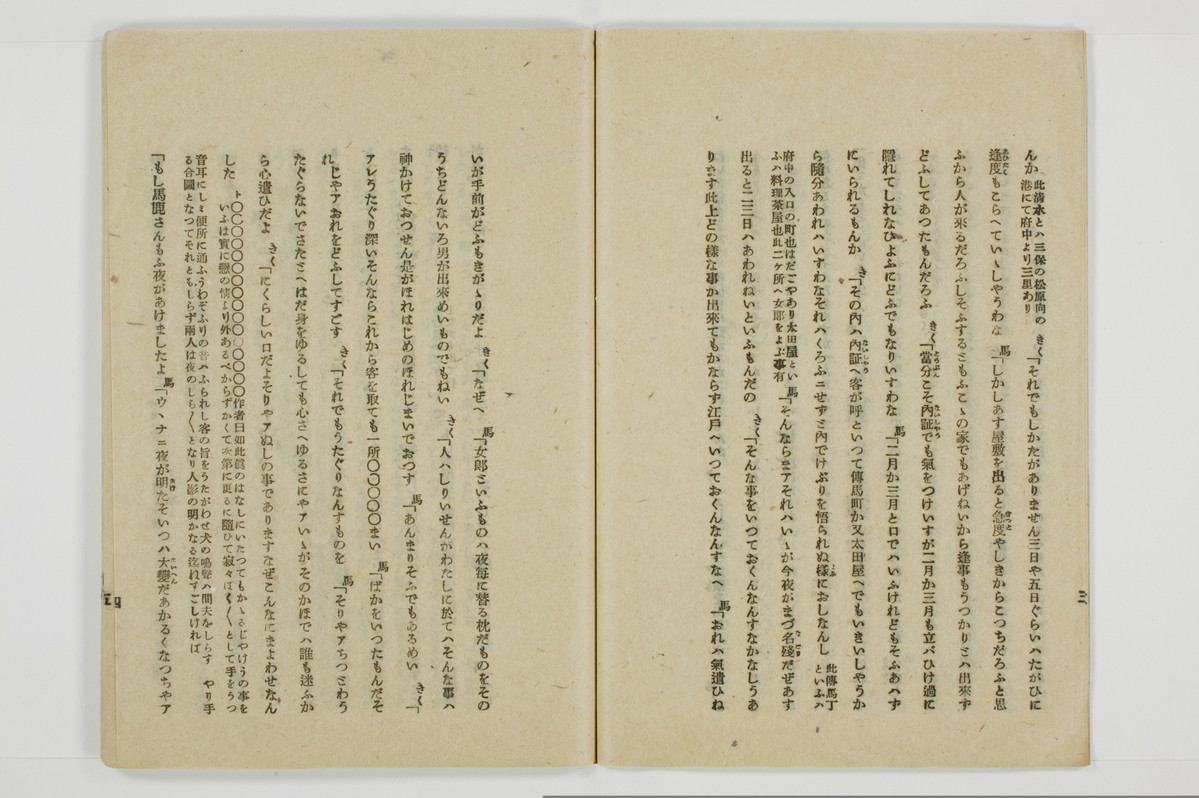 んか此清水とハ三保の松原向の港にて府中より三里ありきく「それでもしかたがありません三日や五日ぐらいハたがひに
逢度もこらへていゝしやうわな馬「しかしあす屋敷を出ると急度やしきからこつちだろふと思
ふから人が來るだろふしそふするともふこゝの家でもあげねいから逢事もうつかりとハ出來ず
どふしてあつたもんだろふきく「當分こそ內証でも氣をつけいすが二月か三月も立バひけ過に
隱れてしれなひよふにどふでもなりいすわな馬「二月か三月と口でハいふけれどもそふあハず
にいられるもんかきく「その內ハ內証へ客が呼といつて傳馬町か又太田屋へでもいきいしやうか
ら隨分あわれハいすわなそれハくろふニせずと內でけぶりを悟られぬ樣におしなんし此傳馬丁といふハ
府中の入口の町也はたごやあり太田屋といふハ料理茶屋也此二ケ所へ女郎をよぶ事有馬「そんならまアそれハいゝが今夜がまづ名殘だぜあす
出ると二三日ハあわれねいといふもんだのきく「そんな事をいつておくんなんすなかなしうあ
ります此上どの樣な事か出來てもかならず江戶へいつておくんなんすなへ馬「おれハ氣遣ひね
三
いが手前がどふもきがゝりだよきく「なぜへ馬「女郎といふものハ夜每に替る枕だものをその
うちどんないろ男が出來めいものでもねいきく「人ハしりいせんがわたしに於てハそんな事ハ
神かけておつせん是がほれはじめのほれじまいでおつす馬「あんまりそふでもあるめいきく「
アレうたぐり深いそんならこれから客を取ても一所〇〇〇〇まい馬「ばかをいつたもんだそ
れじやアおれをどふしてすごすきく「それでもうたぐりなんすものを馬「そりやアちつとわう
たぐらないでさたとへはだ身をゆるしても心さへゆるさにやアいゝがそのかほでハ誰も迷ふか
ら心遣ひだよきく「にくらしい口だよそりやアぬしの事でありますなぜこんなにきよわせなん
したト〇〇〇〇〇〇〇〇〇〇〇〇〇〇作者曰如此眞のはなしにいたつてもかゝるじやけうの事を
いふは實に戀の情より外あるべからずかくて次第に更るに隨ひて寂々ばく〳〵として手をうつ
音耳にしみ便所に通ふうわぞふりの音ハふられし客の旨をうたがわせ犬の鳴聲ハ間夫をしらすやり手
る合圖となつてそれともしらず兩人は夜のしら〳〵となり人影の明かなる迄れずごしければ
「もし馬鹿さんもふ夜があけましたよ馬「ウヽナニ夜が明たそいつハ大變だあかるくなつちやア
四
五